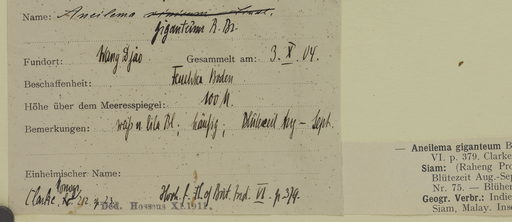 Name: Aneilema
giganteum R. Br.
Fundort: Wang Djao Gesammelt am: 3. X. 04.
Beschaffenheit: Boden
Höhe über dem Meeresspiegel: 100 M.
Bemerkungen: lila Bl., häufig; Blütezeit Aug – Sept.
Einheimischer Name:
Clarke Hook. f. Fl. of Brit. Ind. VI. p. 379.
Ded. Hosseus X. 1911.
— Aneilema giganteum B
VI. p. 379, Clarke
Siam: (Raheng Pro
Blütezeit Aug.-Sep
Nr. 75. — Blühen
Geogr. Verbr.: Indie
Siam, Malay. Inse